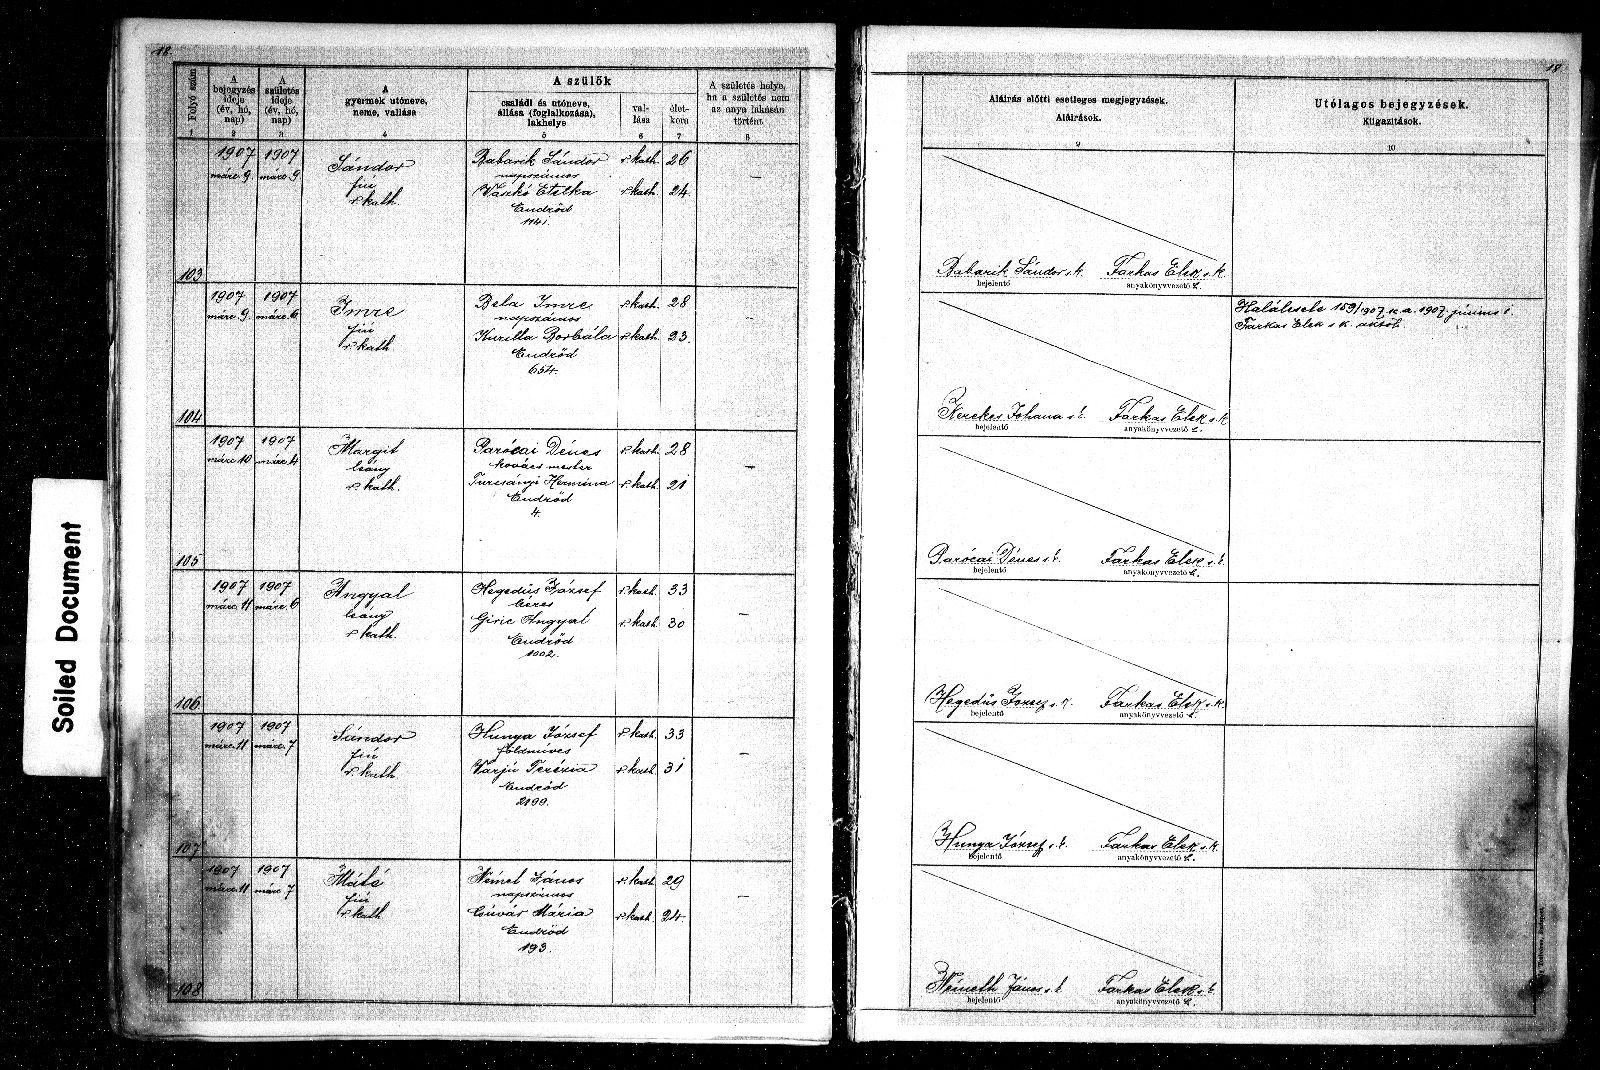 Soiled Document
18.
Folyó szám
A bejegyzés ideje (év, hó, nap)
A születés ideje (év, hó, nap)
A gyermek utóneve, neme, vallása
A szülők
családi és utóneve, állása (foglalkozása), lakhelye
vallása
életkora
A születés helye, ha a születés nem az anya lakásán történt
1 2 3 4 5 6 7 8
103
1907 márc. 9.
1907 márc. 9
Sándor
fiú
r. kath.
Babarik Sándor r. kath. 26
napszámos
Vaszkó Etelka r. kath. 24.
Endrőd
1141.
—
104
1907 márc. 9.
1907 márc. 6
Imre
fiú
r. kath.
Bela Imre r. kath. 28
napszámos
Kurilla Borbála r. kath. 23.
Endrőd
654.
105
1907 márc. 10
1907 márc. 4
Margit
leány
r. kath.
Parócai Dénes r. kath. 28
kovács mester
Turcsányi Hermina r. kath. 21
Endrőd
4.
—
106.
1907 márc. 11
1907 márc. 6
Angyal
leány
r. kath.
Hegedüs József r. kath. 33
béres
Giric Angyal r. kath. 30
Endrőd
1002.
—
107
1907 márc. 11
1907 márc. 7
Sándor
fiú
r. kath
Hunya József r. kath. 33
földműves
Varjú Terézia r. kath. 31
Endrőd
2199.
—
108
1907 márc. 11
1907 márc. 7
Máté
fiú
r. kath
Német János r. kath. 29
napszámos
Csuvár Mária r. kath. 24.
Endrőd
193.
—
18.
Aláírás előtti esetleges megjegyzések.
Aláírások.
9
Utólagos bejegyzések.
Kiigazítások.
10
Babarik Sándor s. k. Farkas Elek s. k.
bejelentő anyakönyvvezető h.
Haláleset 159/1907 k. a. 1907. június 1.
Farkas Elek s. k.
Kerekes Johana s. k. Farkas Elek s. k.
bejelentő anyakönyvvezető h.
Parócai Dénes s. k. Farkas Elek s. k.
bejelentő anyakönyvvezető h.
Hegedüs József s. k. Farkas Elek s. k.
bejelentő anyakönyvvezető h.
Hunya József s. k. Farkas Elek s. k.
bejelentő anyakönyvvezető h.
Németh János s. k. Farkas Elek s. k.
bejelentő anyakönyvvezető h.